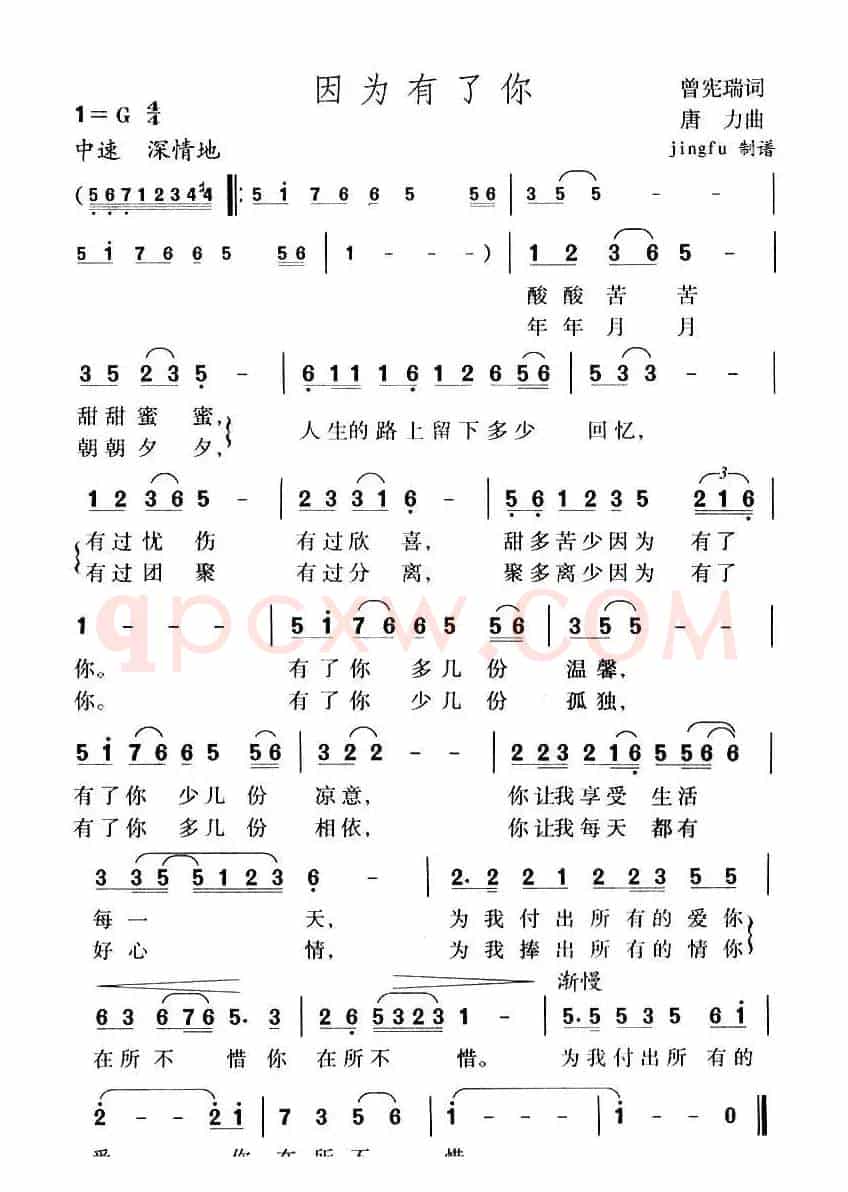 因为有了你
曾宪瑞词
1=G 4/4
唐 力曲
中速 深情地
jingfu 制谱
(5 6 7 1 2 3 4 #4 ‖: 5 i 7 6 6 5 5 6 | 3 5 5 - - |
5 i 7 6 6 5 5 6 | 1 - - - ) | 1 2 3 6 5 - |
酸酸苦 苦
年年月 月
3 5 2 3 5 - | 6 1 1 1 1 6 1 2 6 5 6 | 5 3 3 - - |
甜甜蜜 蜜, 人生的路上留下多少 回忆,
朝朝夕 夕,
1 2 3 6 5 - | 2 3 3 1 6 - | 5 6 1 2 3 5 2 1 6 |
3
有过忧 伤 有过欣 喜, 甜多苦少因为 有了
有过团 聚 有过分 离, 聚多离少因为 有了
1 - - - | 5 i 7 6 6 5 5 6 | 3 5 5 - - |
qpcxw.COM
你。 有了你 多几 份 温馨,
你。 有了你 少几 份 孤独,
5 i 7 6 6 5 5 6 | 3 2 2 - - | 2 2 3 2 1 6 5 5 6 6 |
有了你 少几 份 凉意, 你让我享受 生活
有了你 多几 份 相依, 你让我每天 都有
3 3 5 5 1 2 3 6 - | 2. 2 2 1 2 2 3 5 5 |
每一 天, 为我付出所有的爱你
好心 情, 为我捧出所有的情你
渐慢
6 3 6 7 6 5. 3 | 2 6 5 3 2 3 1 - | 5. 5 5 3 5 6 i |
在所不 惜你 在所不 惜。 为我付出所 有的
2 - - 2 i | 7 3 5 6 | i - - - | i - - 0 ‖
爱 你 在 所 不 惜